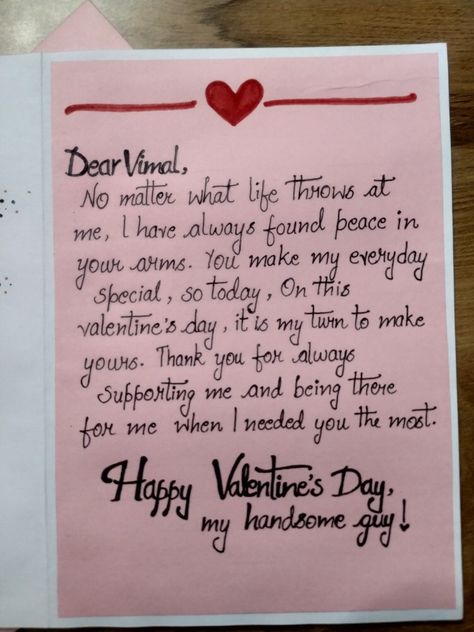 Dear Vimal,
No matter what life throws at
me, I have always found peace in
your arms. You make my everyday
special, so today, On this
valentine's day, it is my turn to make
yours. Thank you for always
supporting me and being there
for me when I needed you the most.
Happy Valentine's Day,
my handsome guy!